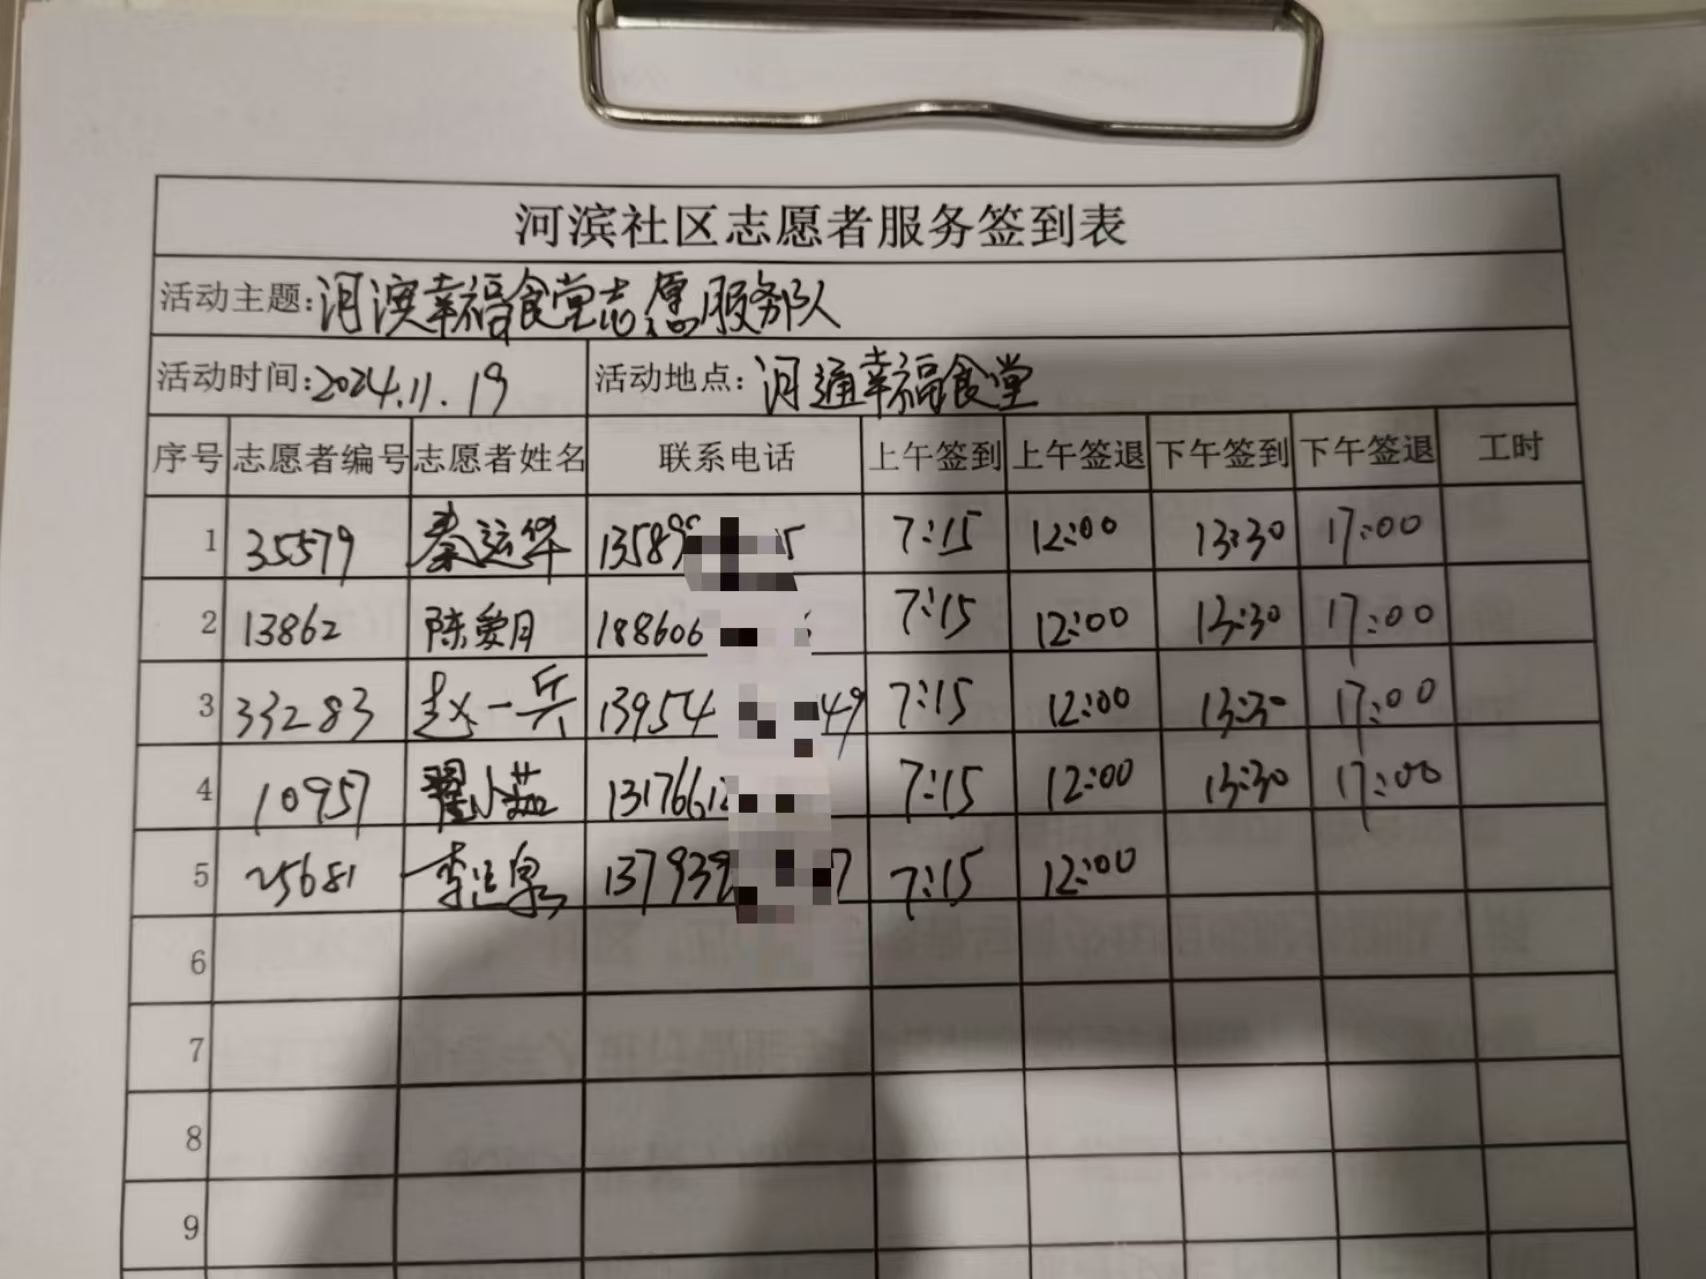 河滨社区志愿者服务签到表
活动主题:河滨幸福食堂志愿服务队
活动时间:2024.11.19 活动地点:河通幸福食堂
序号 志愿者编号 志愿者姓名 联系电话 上午签到 上午签退 下午签到 下午签退 工时
1 35579 秦运华 13589 5 7:15 12:00 13:30 17:00
2 13862 陈爱月 188606 7:15 12:00 13:30 17:00
3 33283 赵一兵 13954 49 7:15 12:00 13:30 17:00
4 10957 翟小茹 1317661 7:15 12:00 13:30 17:00
5 25681 李 泉 137939 7 7:15 12:00
6
7
8
9